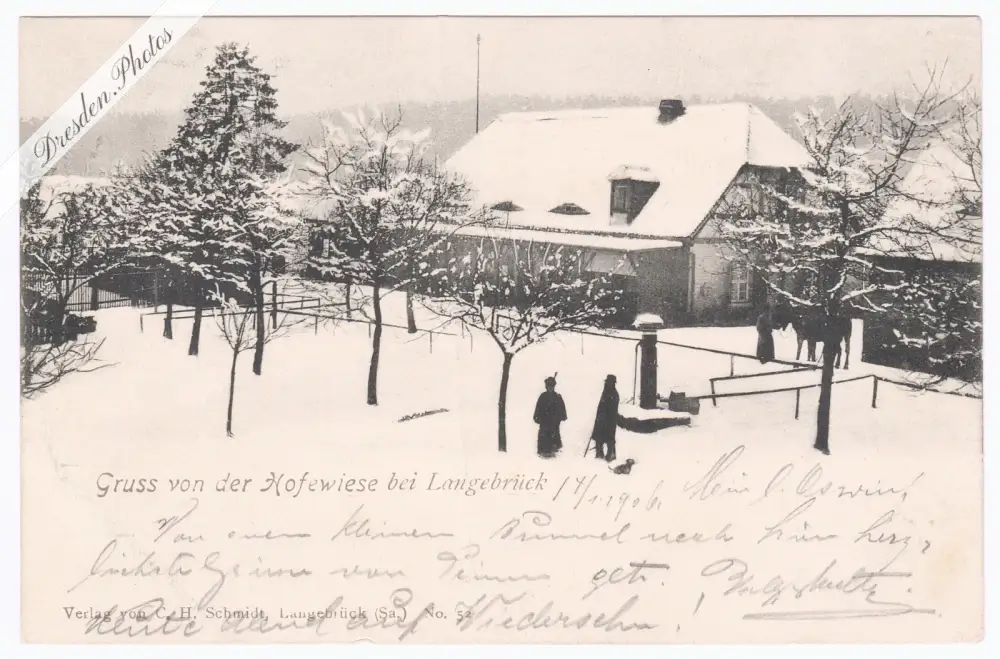 Dresden.Photos
Gruss von der Hofewiese bei Langebrück 14/1. 1906. Mein l. Oswin,
Von einem kleinen Bummel nach hier herz-
lichste von Deinem getr.
Verlag von C. H. Schmidt, Langebrück (Sa.) No. 52
heute Abend auf Wiedersehn!